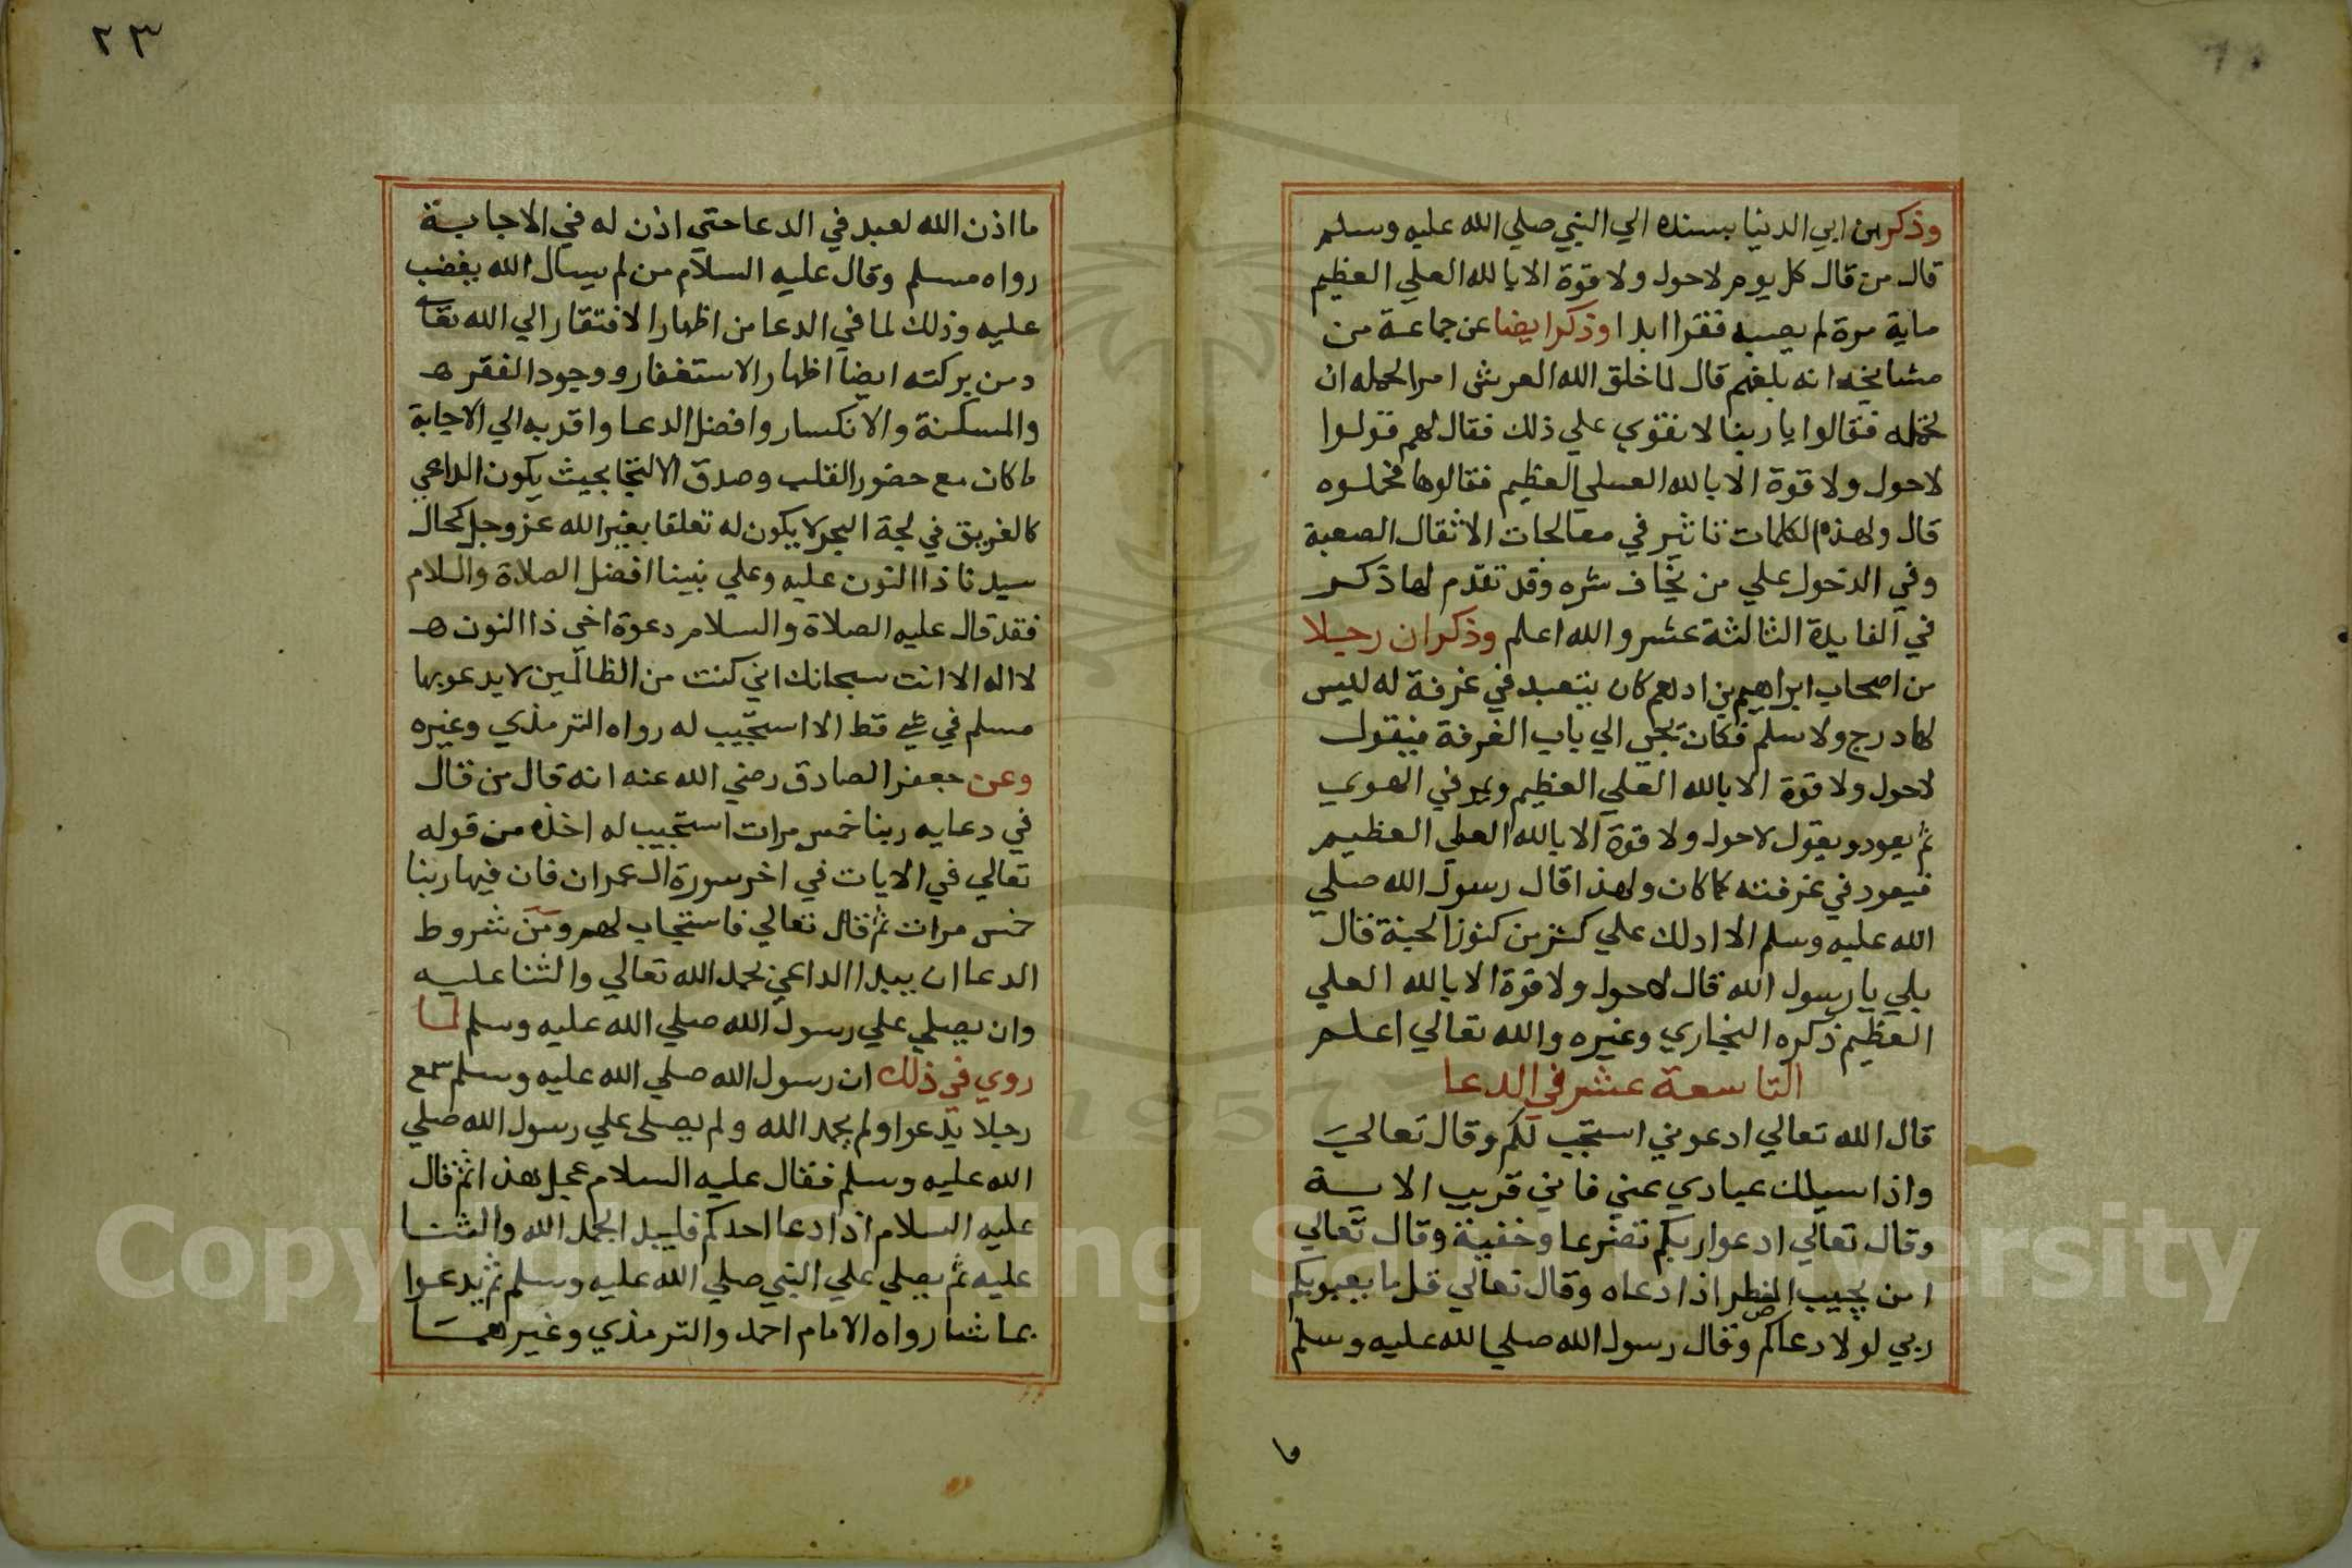 وذكر ابن ابي الدنيا بسنده الي النبي صلي الله عليه وسلم
قال من قال كل يوم لاحول ولا قوة الا بالله العلي العظيم
ماية مرة لم يصبه فقرا ابدا وذكر ايضا عن جماعة من
مشايخه انه بلغهم قال لما خلق الله العرش امر الحمله ان
تحمله فقالوا يا ربنا لا نقوي علي ذلك فقال لهم قولوا
لاحول ولا قوة الا بالله العلي العظيم فقالوها فحملوه
قال ولهذه الكلمات تاثير في معالجات الاثقال الصعبة
وفي الدخول علي من يخاف شره وقد تقدم لها ذكر
في الفايدة الثالثة عشر والله اعلم وذكر ان رجلا
من اصحاب ابراهيم بن ادهم كان يتعبد في غرفة له ليس
لها درج ولا سلم فكان يجي الي باب الغرفة فيقول
لاحول ولا قوة الا بالله العلي العظيم ويمر في الهوي
ثم يعود ويقول لاحول ولا قوة الا بالله العلي العظيم
فيعود في غرفته كما كان ولهذا قال رسول الله صلي
الله عليه وسلم الا ادلك علي كنز من كنوز الجنة قال
بلي يا رسول الله قال لاحول ولا قوة الا بالله العلي
العظيم ذكره البخاري وغيره والله تعالي اعلم
التاسعة عشر في الدعا
قال الله تعالي ادعوني استجب لكم وقال تعالي
واذا سيلك عبادي عني فاني قريب الاية
وقال تعالي ادعوا ربكم تضرعا وخفية وقال تعالي
امن يجيب المضطر اذا دعاه وقال تعالي قل ما يعبو بكم
ربي لولا دعاكم وقال رسول الله صلي الله عليه وسلم
ما
٢٣
ما اذن الله لعبد في الدعا حتي اذن له في الاجابة
رواه مسلم وقال عليه السلام من لم يسال الله يغضب
عليه وذلك لما في الدعا من اظهار الافتقار الي الله تعا
ومن بركته ايضا اظهار الاستغفار ووجود الفقر ه
والمسكنة والانكسار وافضل الدعا واقربه الي الاجابة
ما كان مع حضور القلب وصدق الالتجا بحيث يكون الداعي
كالغريق في لجة البحر لا يكون له تعلقا بغير الله عز وجل كحال
سيدنا ذا النون عليه وعلي نبينا افضل الصلاة والسلام
فقد قال عليه الصلاة والسلام دعوة اخي ذا النون ه
لا اله الا انت سبحانك اني كنت من الظالمين لا يدعو بها
مسلم في شي قط الا استجيب له رواه الترمذي وغيره
وعن جعفر الصادق رضي الله عنه انه قال من قال
في دعايه ربنا خمس مرات استجيب له اخذه من قوله
تعالي في الايات في اخر سورة ال عمران فان فيها ربنا
خمس مرات ثم قال تعالي فاستجاب لهم ومن شروط
الدعا ان يبدا الداعي بحمد الله تعالي والثنا عليه
وان يصلي علي رسول الله صلي الله عليه وسلم لما
روي في ذلك ان رسول الله صلي الله عليه وسلم سمع
رجلا يدعوا ولم يحمد الله ولم يصلي علي رسول الله صلي
الله عليه وسلم فقال عليه السلام عجل هذا ثم قال
عليه السلام اذا دعا احدكم فليبدا بحمد الله والثنا
عليه ثم يصلي علي النبي صلي الله عليه وسلم ثم يدعوا
بما شا رواه الامام احمد والترمذي وغيرهما
1957
Copyright © King Saud University